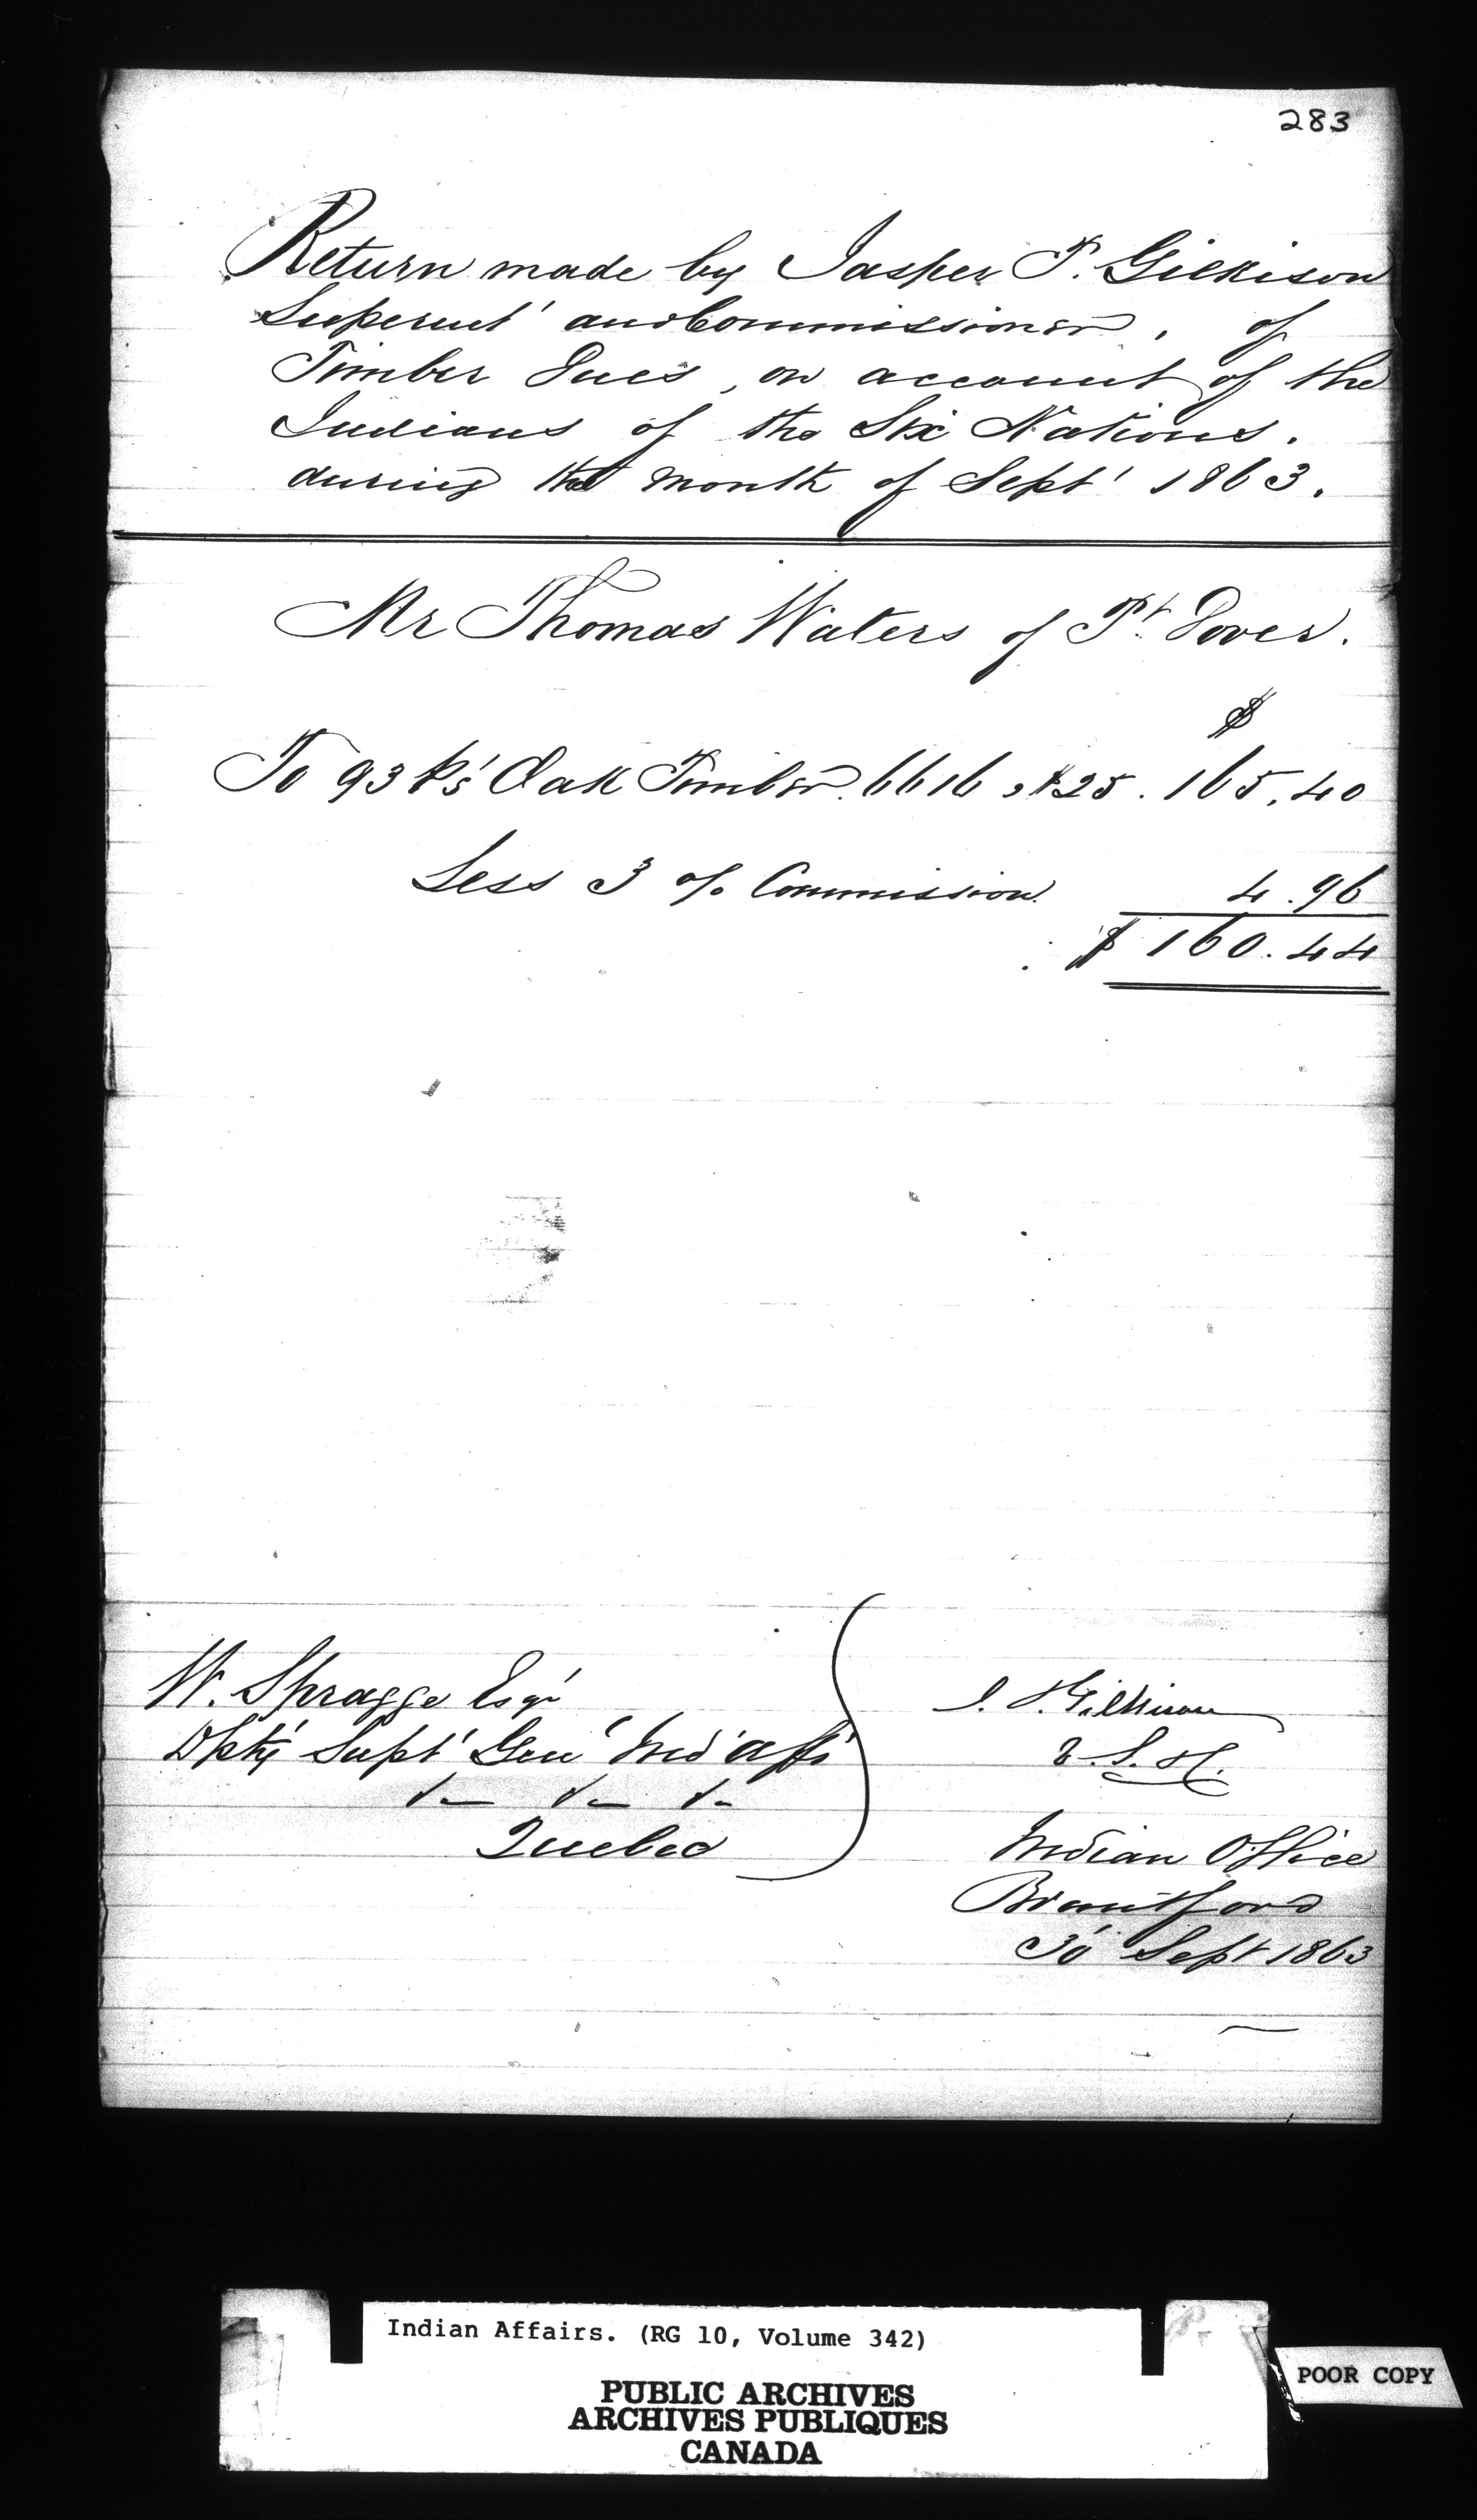 283
Return made by Jasper T. Gilkison
Superint' and Commissioner, of
Timber Dues, on account of the
Indians of the Six Nations.
during the month of Sept' 1863.
Mr Thomas Waters of Pt. Dover.
$
To 93 Ps' Oak Timber. 6616, $25. 165.40
Less 3 % Commission 4.96
$ 160.44
W. Spragge Esqr
Dpty Supt' Gen' Ind' Affs
Quebec
J. T. Gilkison
V. S. &c.
Indian Office
Brantford
30 Sept 1863
Indian Affairs. (RG 10, Volume 342)
PUBLIC ARCHIVES
ARCHIVES PUBLIQUES
CANADA
POOR COPY